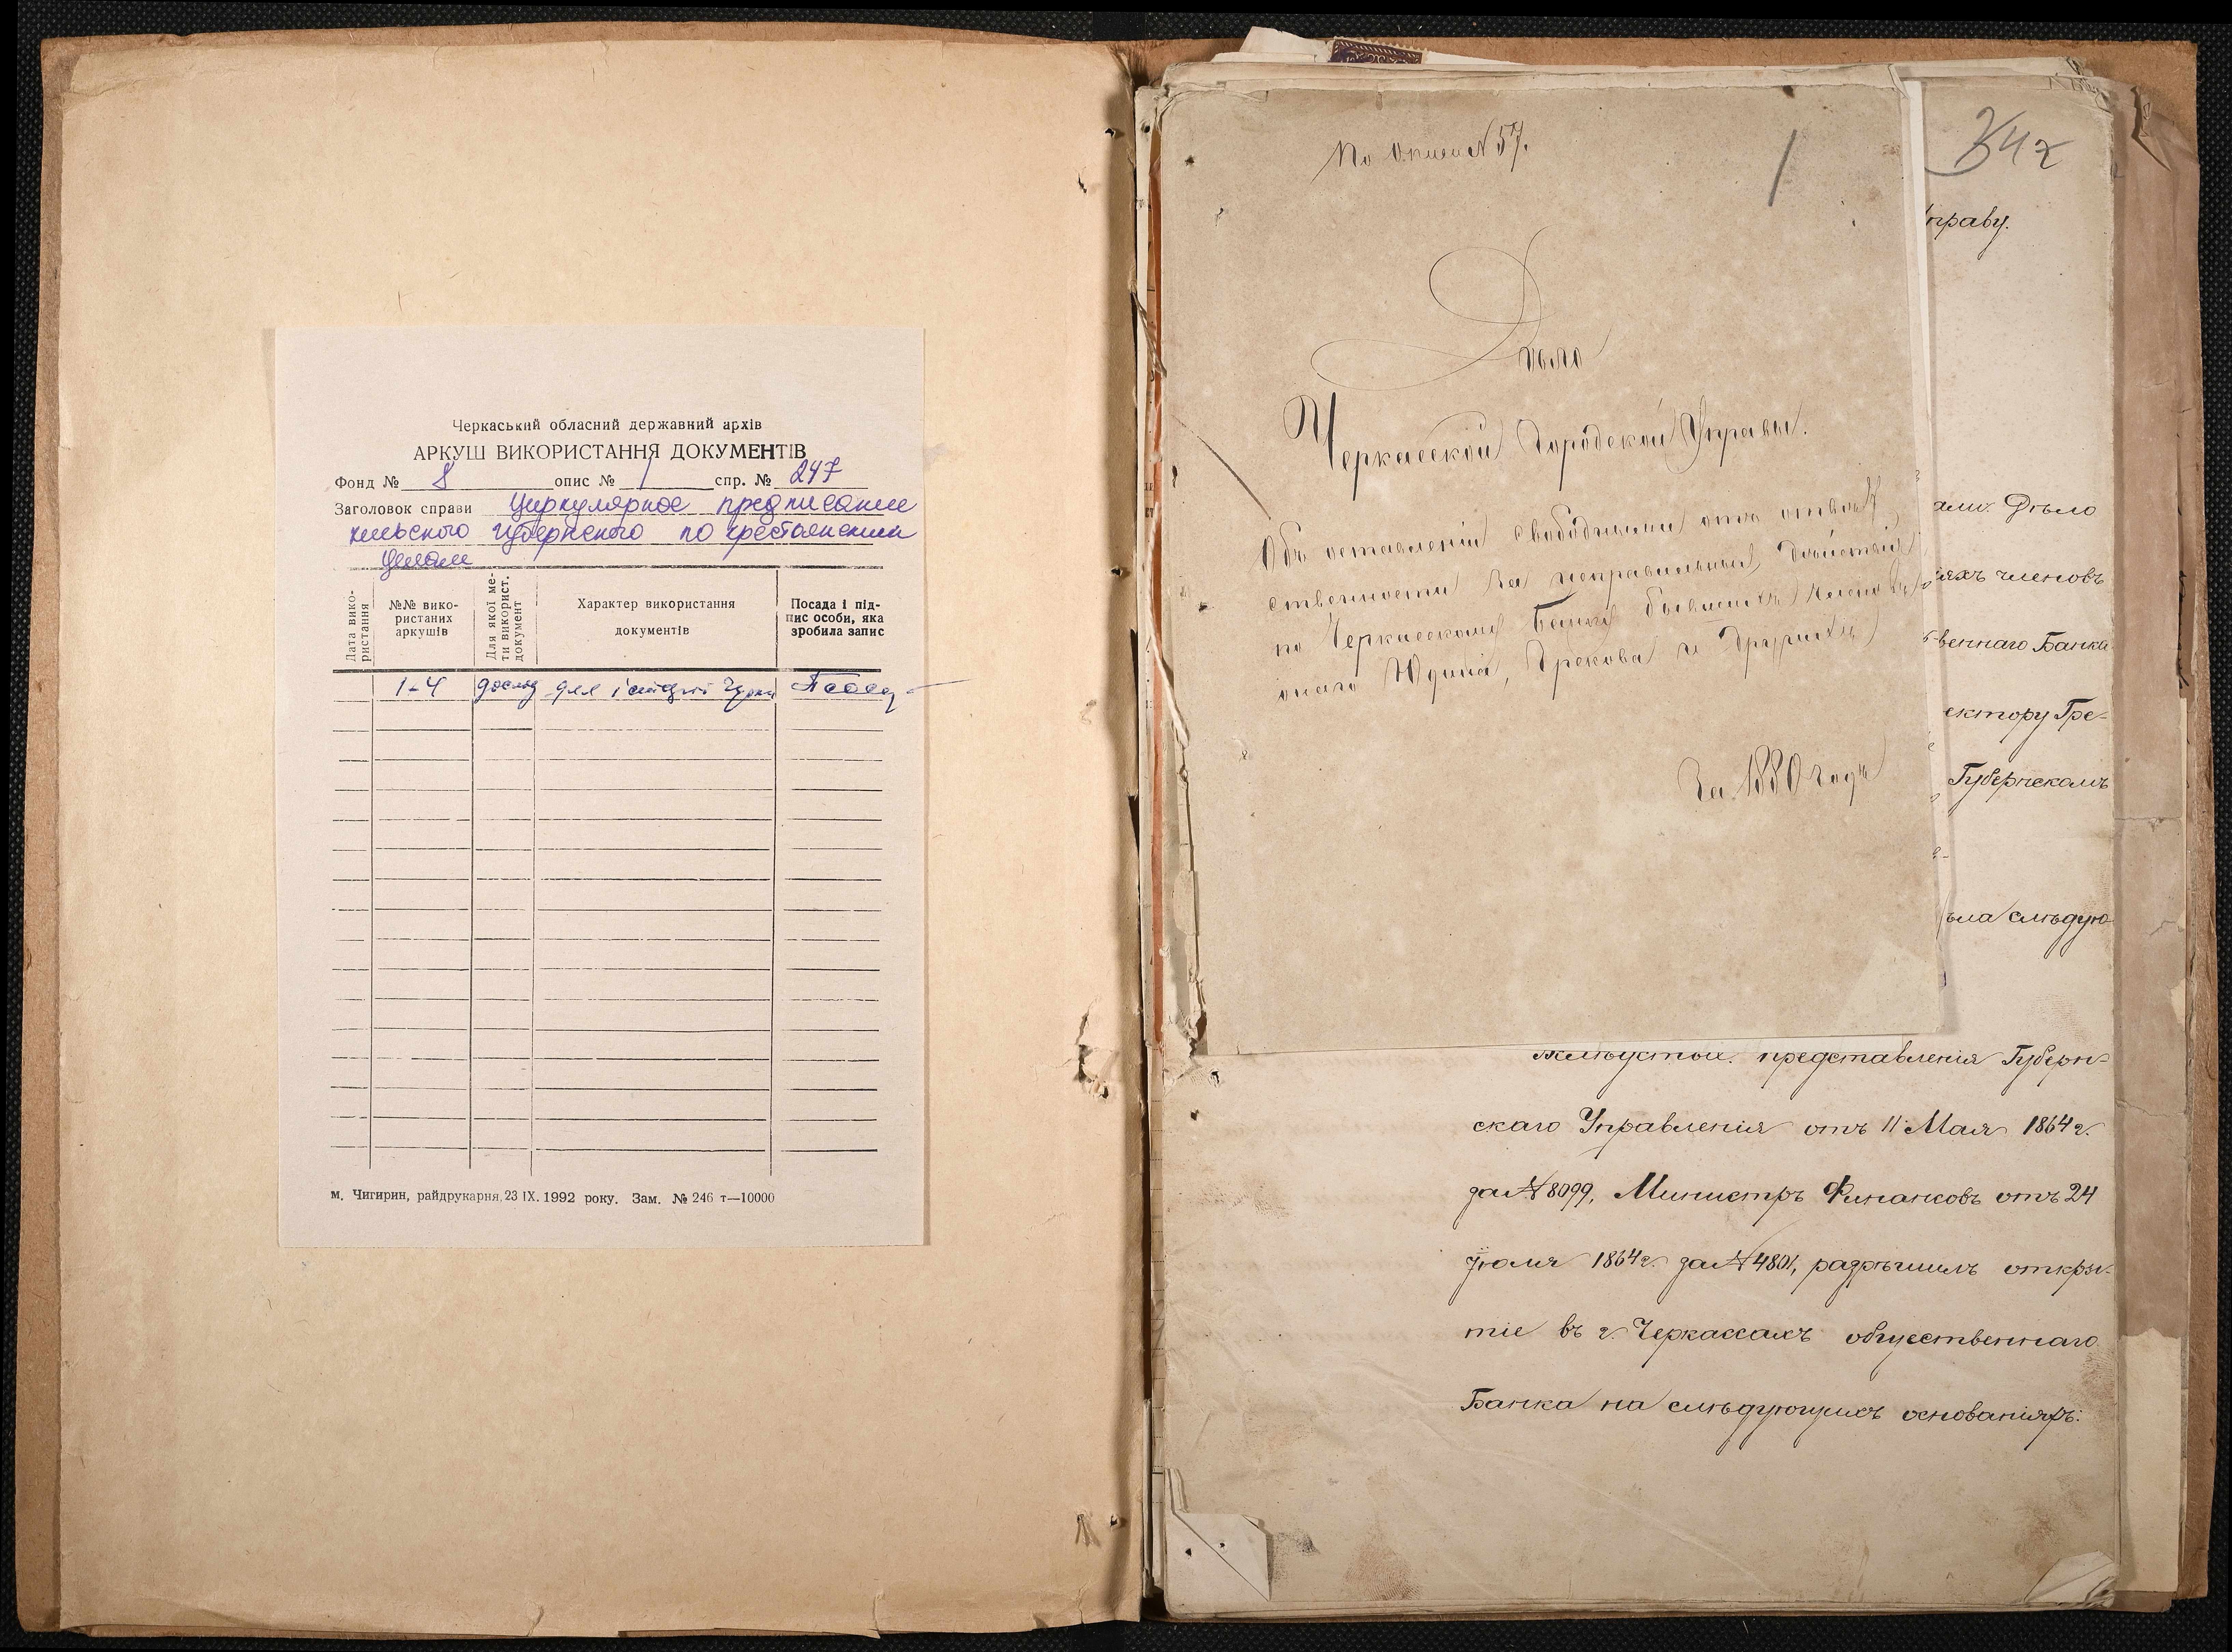 Черкаський обласний державний архів
АРКУШ ВИКОРИСТАННЯ ДОКУМЕНТІВ
Фонд № 8 опис № 1 спр. № 247
Заголовок справи Циркулярное предписание
киевского губернского по крестьянским
делам
Дата використання
№№ вико-
ристаних
аркушів
Для якої ме-
ти використ.
документ
Характер використання
документів
Посада і під-
пис особи, яка
зробила запис
1-4
м. Чигирин, райдрукарня, 23 IX. 1992 року. Зам. № 246 т—10000
По Описи № 57.
1
Дѣло
Черкасской Городской Управы.
Объ оставленіи свободными отъ отвѣт
ственности за неправильныя дѣйствія
по Черкасскому Банку бывшихъ членовъ
онаго Юдина, Грекова и другихъ
За 1880 годъ
342
праву.
ами. Дѣло
іяхъ членовъ
твеннаго Банка
ектору Гре-
Губернскомъ
ѣла слѣдую
представленія Губерн-
скаго Управленія отъ 11 Мая 1864 г.
за № 8099, Министръ Финансовъ отъ 24
Іюля 1864 г. за № 4801, разрѣшилъ откры-
тіе въ г. Черкассахъ общественнаго
Банка на слѣдующихъ основаніяхъ: